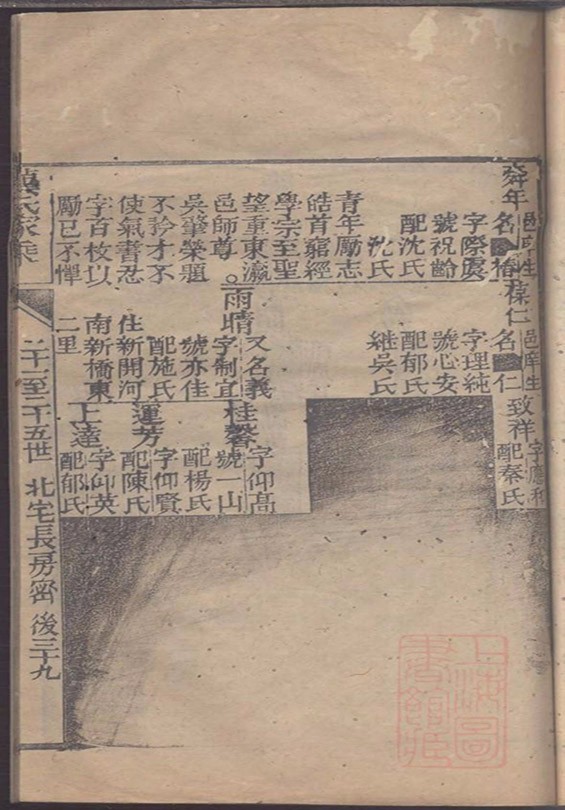 舜年
邑庠生
名椿
字際虞
號祝齡
配沈氏
沈氏
青年勵志
皓首窮經
學宗至聖
望重東瀛
邑師尊
吳肇榮題
不矜才不
使氣書忍
字百枚以
勵已不懈
葆仁
邑庠生
名仁
字理純
號心安
配郁氏
繼吳氏
雨晴
又名義
字制宜
號亦佳
配施氏
住新開河
南新橋東
二里
致祥
配秦氏
桂馨
字仰高
號一山
配楊氏
蓮芳
字仰賢
配陳氏
上達
字仰英
配郁氏
二十一至二十五世
北宅長房密
後三十九
上海圖
書館藏